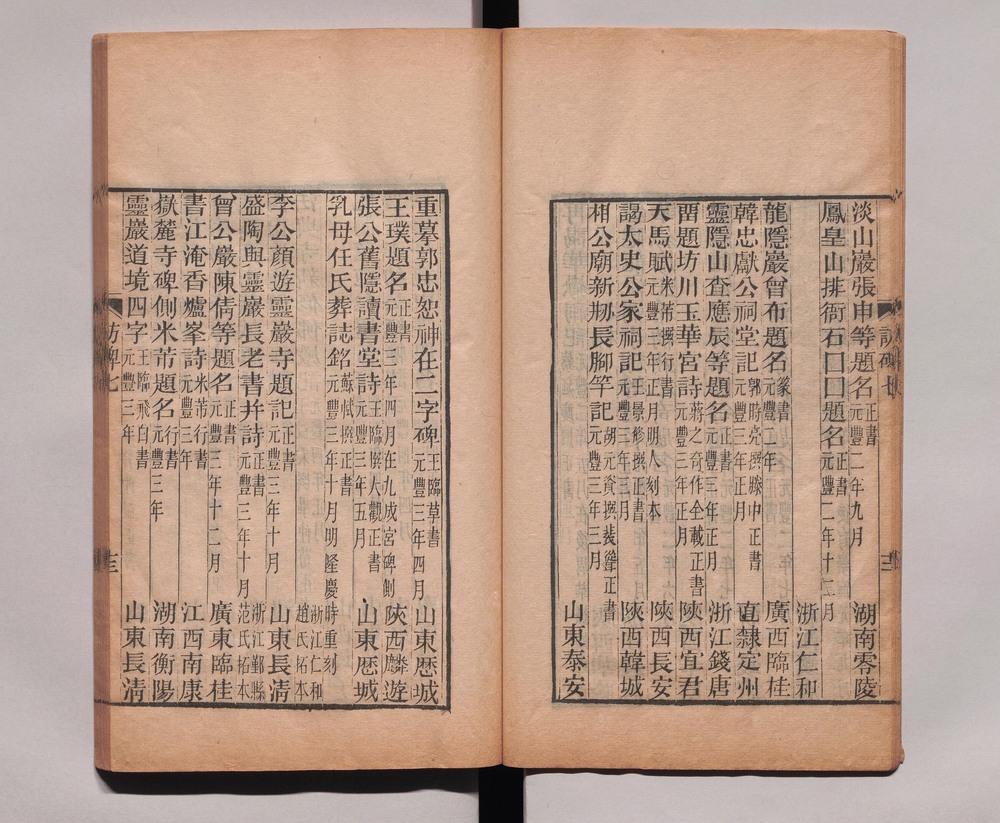 淡山巖張申等題名正書元豐二年九月 湖南零陵
鳳皇山排衙石囗囗題名正書元豐二年十二月
浙江仁和
龍隱巖曾布題名篆書元豐二年 廣西臨桂
韓忠獻公祠堂記郭時亮撰滕中正書元豐三年正月 直隸定州
靈隱山查應辰等題名正書元豐三年正月 浙江錢唐
畱題坊川玉華宮詩蔣之奇作全載正書元豐三年正月 陝西宜君
天馬賦米芾撰行書元豐三年正月明人刻本 陝西長安
謁太史公家祠記王景修撰正書元豐三年三月 陝西韓城
相公廟新剙長腳竿記胡元資撰裴肇正書元豐三年三月 山東泰安
訪碑七
重摹郭忠恕神在二字碑王臨草書元豐三年四月 山東歴城
王璞題名正書元豐三年四月在九成宮碑側 陝西麟遊
張公舊隱讀書堂詩王臨撰人觀正書元豐三年五月 山東歴城
乳母任氏葬誌銘蘇軾撰正書元豐三年十月明隆慶時重刻 浙江仁和趙氏拓本
李公顏遊靈巖寺題記正書元豐三年十月 山東長淸
盛陶與靈巖長老書幷詩正書元豐三年十月 浙江鄞縣范氏拓本
曾公巖陳倩等題名正書元豐三年十二月 廣東臨桂
書江淹香爐峯詩米芾行書元豐三年 江西南康
嶽麓寺碑側米芾題名行書元豐三年 湖南衡陽
靈巖道境四字王臨飛白書元豐三年 山東長淸
訪碑七